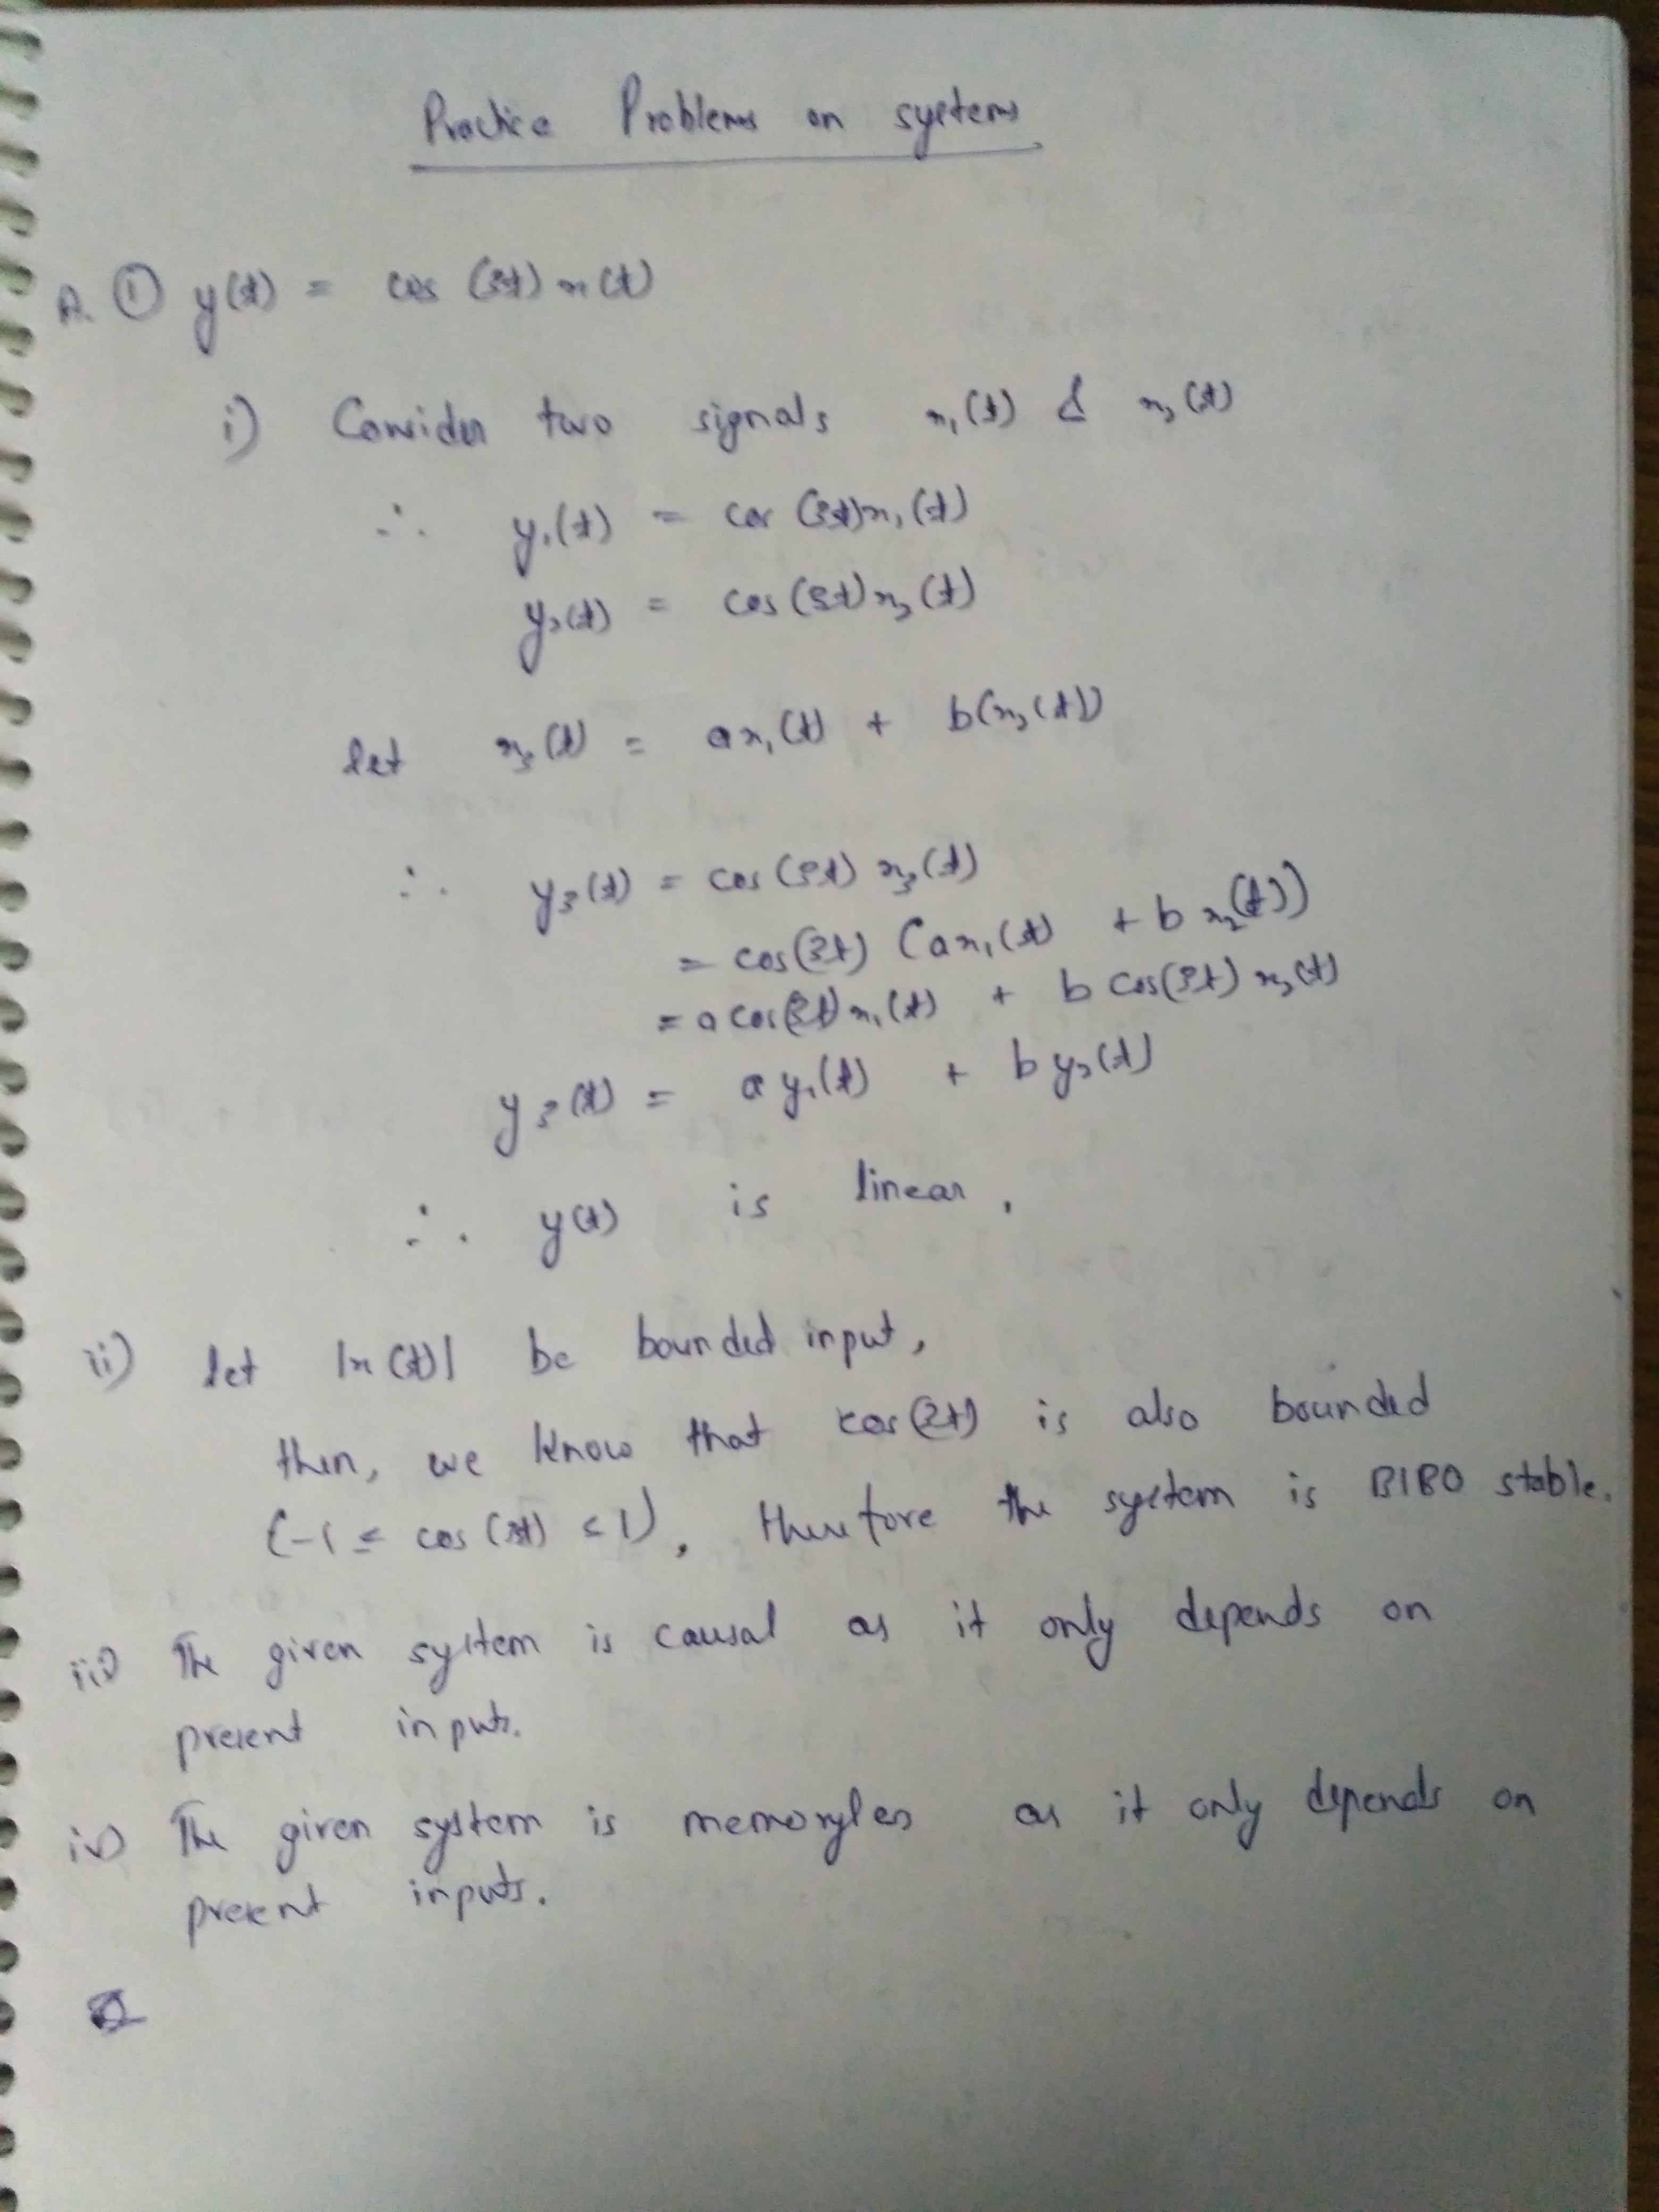 Practice Problems on systems
A. ① y(t) = cos (3t) x(t)
i) Consider two signals x₁(t) & x₂(t)
∴ y₁(t) = cos (3t) x₁(t)
y₂(t) = cos (3t) x₂(t)
let x₃(t) = a x₁(t) + b(x₂(t))
∴ y₃(t) = cos (3t) x₃(t)
= cos(3t) (a x₁(t) + b x₂(t))
= a cos(3t) x₁(t) + b cos(3t) x₂(t)
y₃(t) = a y₁(t) + b y₂(t)
∴ y(t) is linear.
ii) let |x(t)| be bounded input,
then, we know that cos(3t) is also bounded
(-1 ≤ cos (3t) ≤ 1), therefore the system is BIBO stable.
iii) The given system is causal as it only depends on
present inputs.
iv) The given system is memoryless as it only depends on
present inputs.